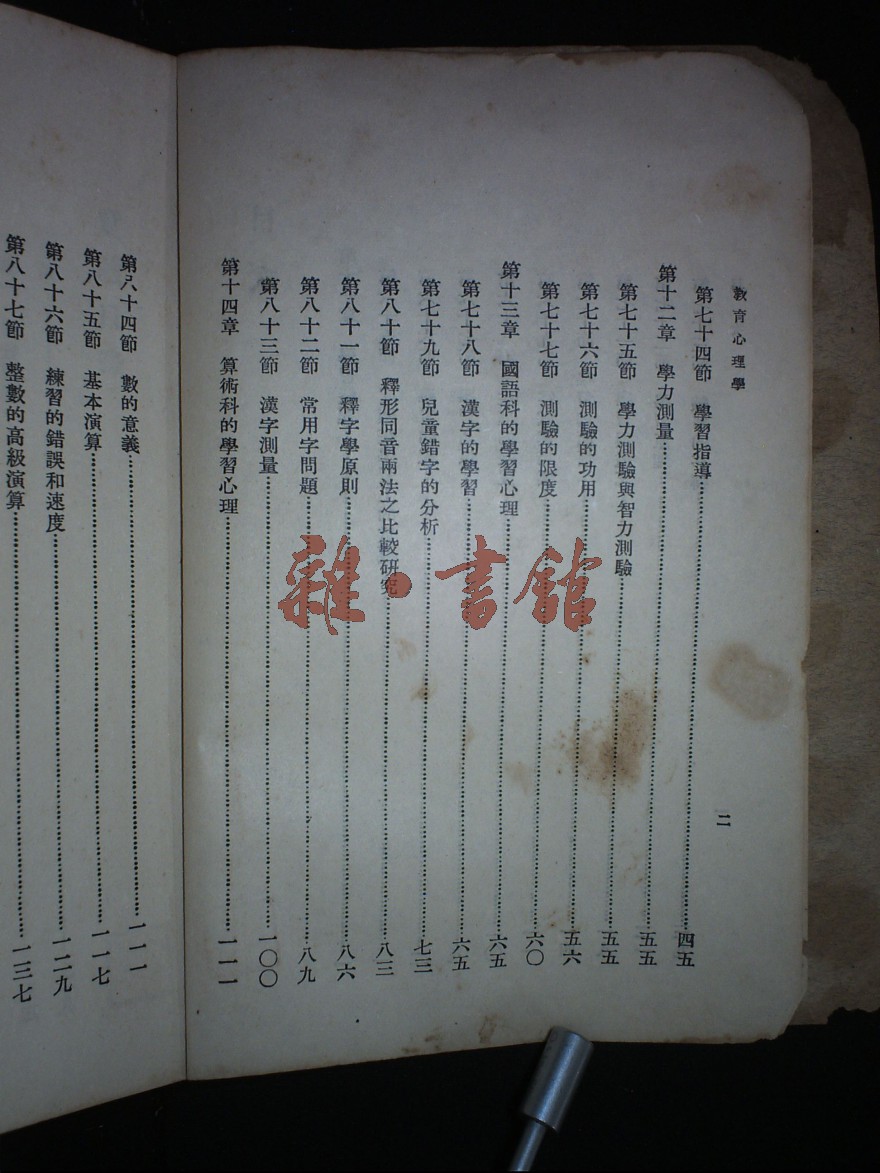 教育心理學
二
第七十四節　學習指導…………四五
第十二章　學力測量…………五五
第七十五節　學力測驗與智力測驗…………五五
第七十六節　測驗的功用…………五六
第七十七節　測驗的限度…………六〇
第十三章　國語科的學習心理…………六五
第七十八節　漢字的學習…………六五
第七十九節　兒童錯字的分析…………七三
第八十節　釋形同音兩法之比較研究…………八三
第八十一節　釋字學原則…………八六
第八十二節　常用字問題…………八九
第八十三節　漢字測量…………一〇〇
第十四章　算術科的學習心理…………一一一
第八十四節　數的意義…………一一一
第八十五節　基本演算…………一一七
第八十六節　練習的錯誤和速度…………一二九
第八十七節　整數的高級演算…………一三七
雜·書館